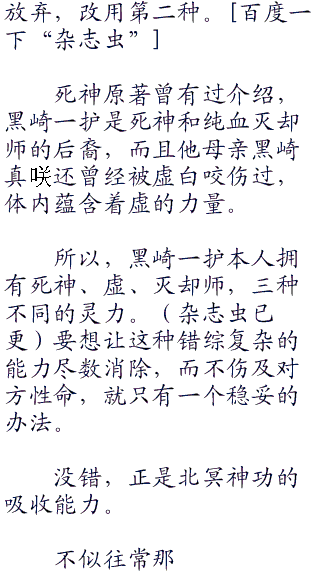 放弃，改用第二种。[百度一
下“杂志虫”]
死神原著曾有过介绍，
黑崎一护是死神和纯血灭却
师的后裔，而且他母亲黑崎
真咲还曾经被虚白咬伤过，
体内蕴含着虚的力量。
所以，黑崎一护本人拥
有死神、虚、灭却师，三种
不同的灵力。（杂志虫已
更）要想让这种错综复杂的
能力尽数消除，而不伤及对
方性命，就只有一个稳妥的
办法。
没错，正是北冥神功的
吸收能力。
不似往常那